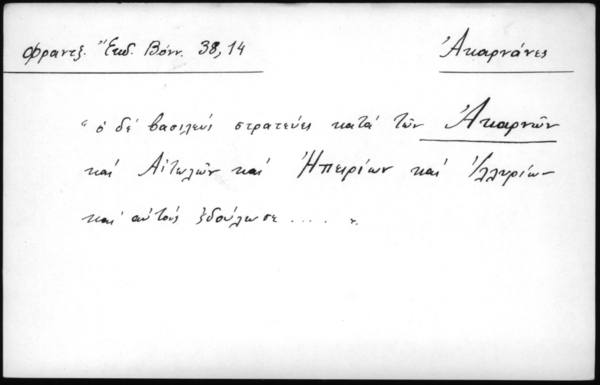 Φραντζ. Ἔκδ. Βόνν. 38,14
Ἀκαρνᾶνες
"ὁ δέ βασιλεύς στρατεύει κατά τῶν Ἀκαρνῶν
καί Αἰτωλῶν καί Ἠπειρίων καί Ἰλλυρίω-
καί αὐτούς ἐδούλωσε .... ".